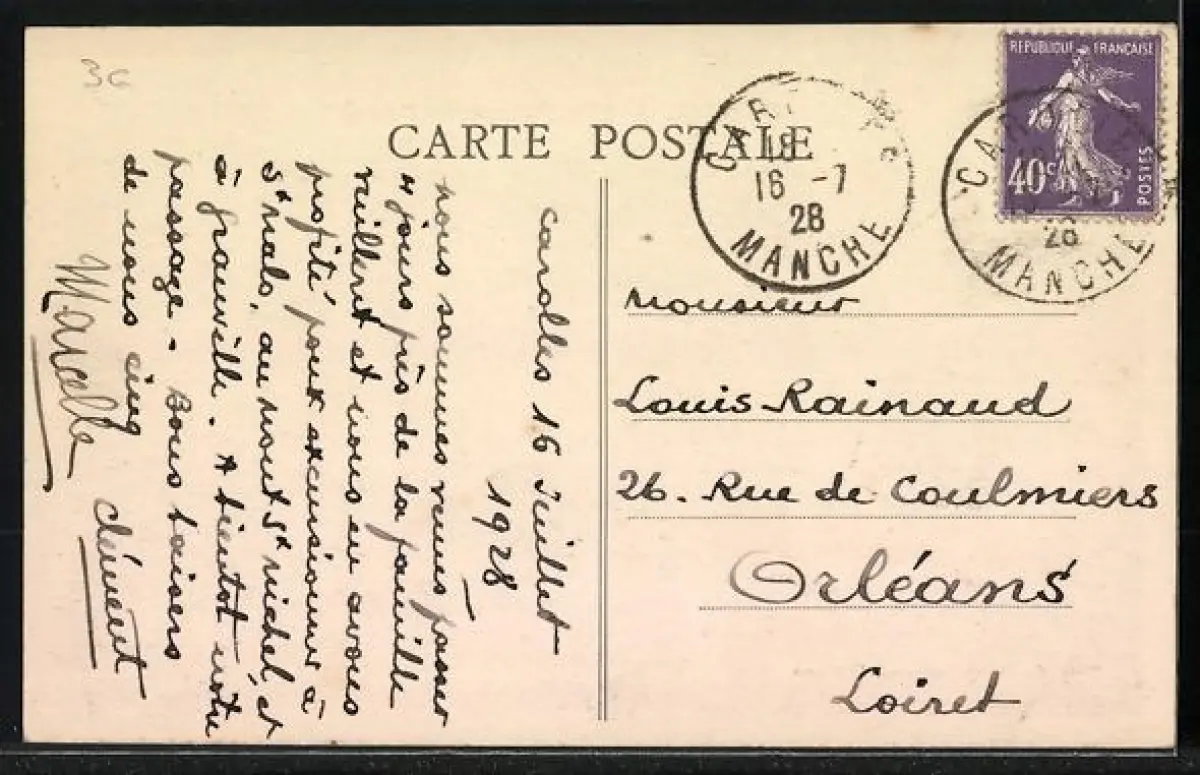 36
CARTE POSTALE
REPUBLIQUE FRANÇAISE
40c
POSTES
18
16 -7
28
MANCHE
28
MANCHE
Carolles 16 Juillet
1928
nous sommes venus passer
4 jours près de la famille
Veilleret et nous en avons
profité pour excursionner à
St Malo, au mont St Michel, et
à Granville. A bientot notre
passage. Bons baisers
de nous cinq
Marcelle
Clément
Monsieur
Louis Rainaud
26. Rue de Coulmiers
Orléans
Loiret